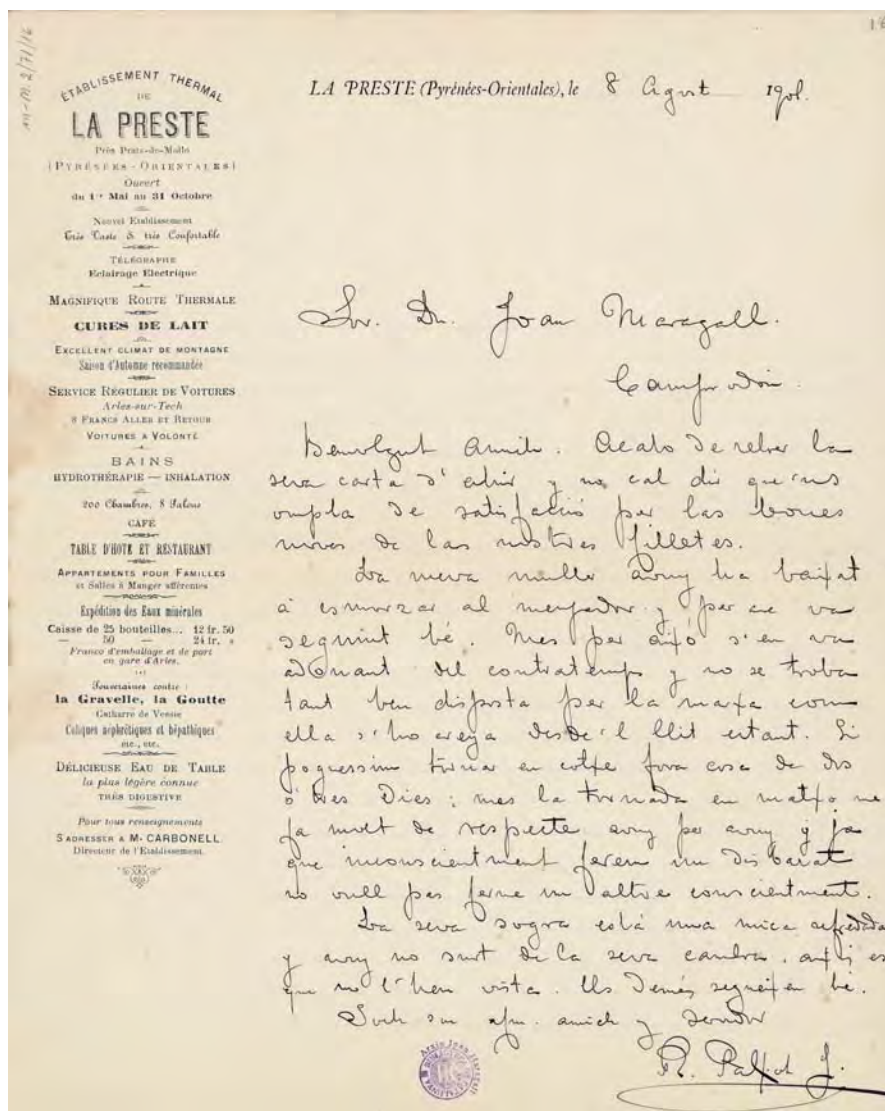 18
ÉTABLISSEMENT THERMAL
DE
LA PRESTE
Près Prats-de-Mollo
(PYRÉNÉES-ORIENTALES)
Ouvert
du 1er Mai au 31 Octobre
Nouvel Etablissement
Très Vaste & très Confortable
TÉLÉGRAPHE
Eclairage Electrique
MAGNIFIQUE ROUTE THERMALE
CURES DE LAIT
EXCELLENT CLIMAT DE MONTAGNE
Saison d'Automne recommandée
SERVICE RÉGULIER DE VOITURES
Arles-sur-Tech
8 FRANCS ALLER ET RETOUR
VOITURES A VOLONTÉ
BAINS
HYDROTHÉRAPIE — INHALATION
200 Chambres, 8 Salons
CAFÉ
TABLE D'HOTE ET RESTAURANT
APPARTEMENTS POUR FAMILLES
et Salles à Manger afférentes
Expédition des Eaux minérales
Caisse de 25 bouteilles... 12 fr. 50
— 50 — 24 fr. »
Franco d'emballage et de port
en gare d'Arles.
Souveraines contre :
la Gravelle, la Goutte
Catharre de Vessie
Coliques néphrétiques et hépathiques
etc., etc.
DÉLICIEUSE EAU DE TABLE
la plus légère connue
TRÈS DIGESTIVE
Pour tous renseignements
S'ADRESSER A Mr CARBONELL
Directeur de l'Etablissement.
LA PRESTE (Pyrénées-Orientales), le 8 Agost 1901.
Sor. Dn. Joan Maragall.
Camprodon.
Benvolgut amich. Acabo de rebrer la
seva carta d'ahir y no cal dir que'ns
ompla de satisfacció per las bones
noves de las nostres filletes.
La meva muller avuy ha baixat
á esmorzar al menjador y per ara va
seguint bé. Mes per aixó s'en va
adonant del contratemps y no se troba
tant ben disposta per la marxa com
ella s'ho creya desde'l llit estant. Si
poguessim tornar en cotxe fora cosa de dos
ó tres dies; mes la tornada en matxo me
fa molt de respecte avuy per avuy y ja
que inconscientment ferem un disbarat
no vull pas ferne un altre conscientment.
La seva sogra está una mica refredada
y avuy no surt de la seva cambra, aixís es
que no l'hem vista. Els demés segueixen bé.
Soch son afm. amich y servidor